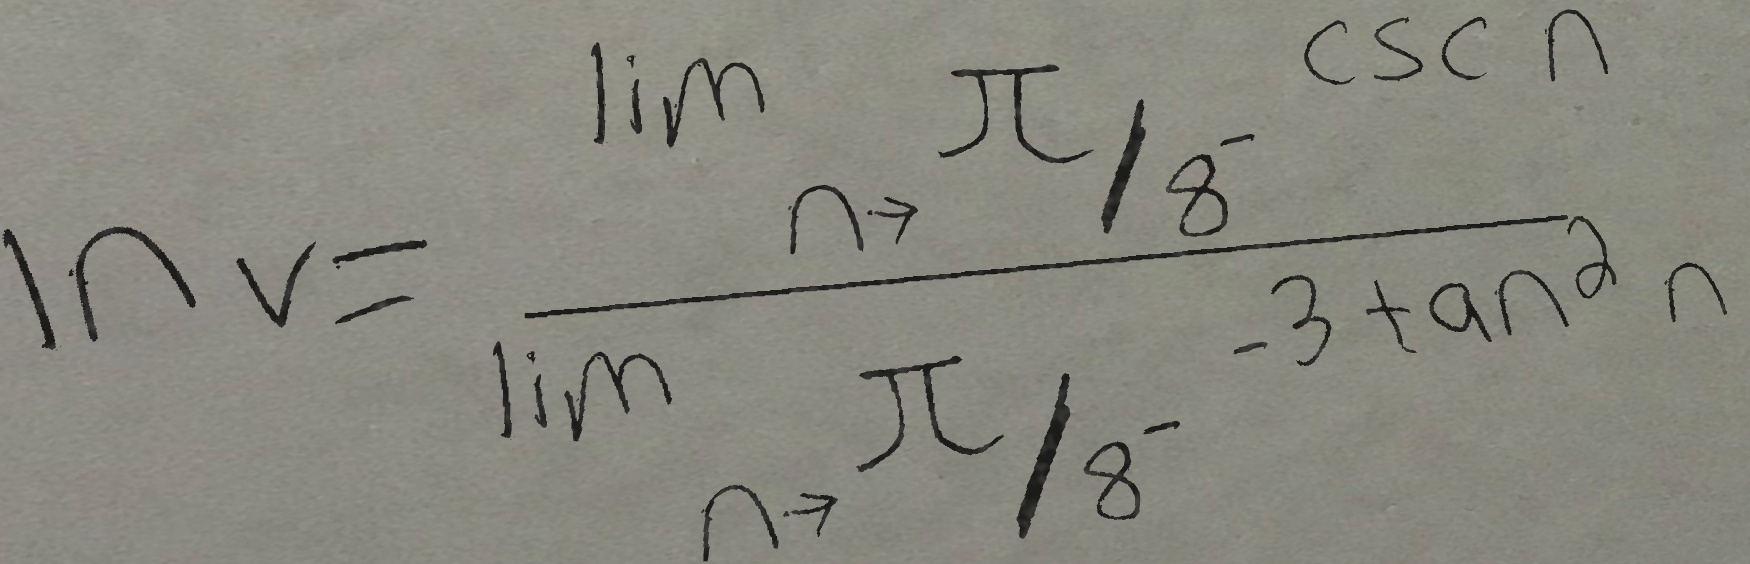 ln v = \frac{\lim_{n \to \pi/8^-} \csc n}{\lim_{n \to \pi/8^-} -3 \tan^2 n}